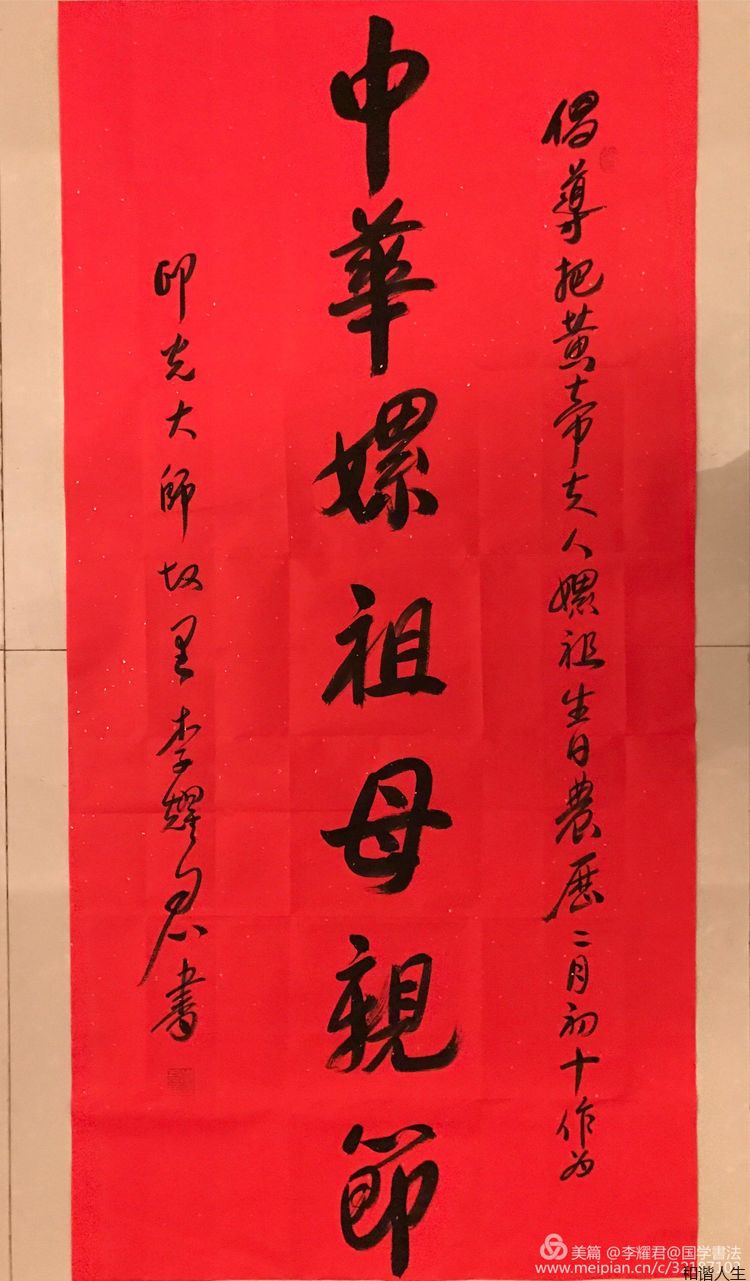 倡導把黄帝夫人嫘祖生日農歷二月初十作为
中華嫘祖母親節
印光大師故里李耀君書
美篇 @李耀君@国学書法
www.meipian.cn/c/32187101
和谐人生